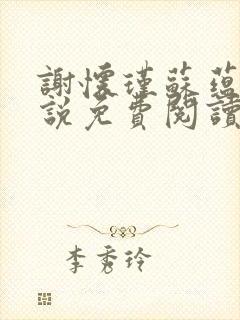 謝懷瑾蘇蘊
說免費閱讀
李秀玲